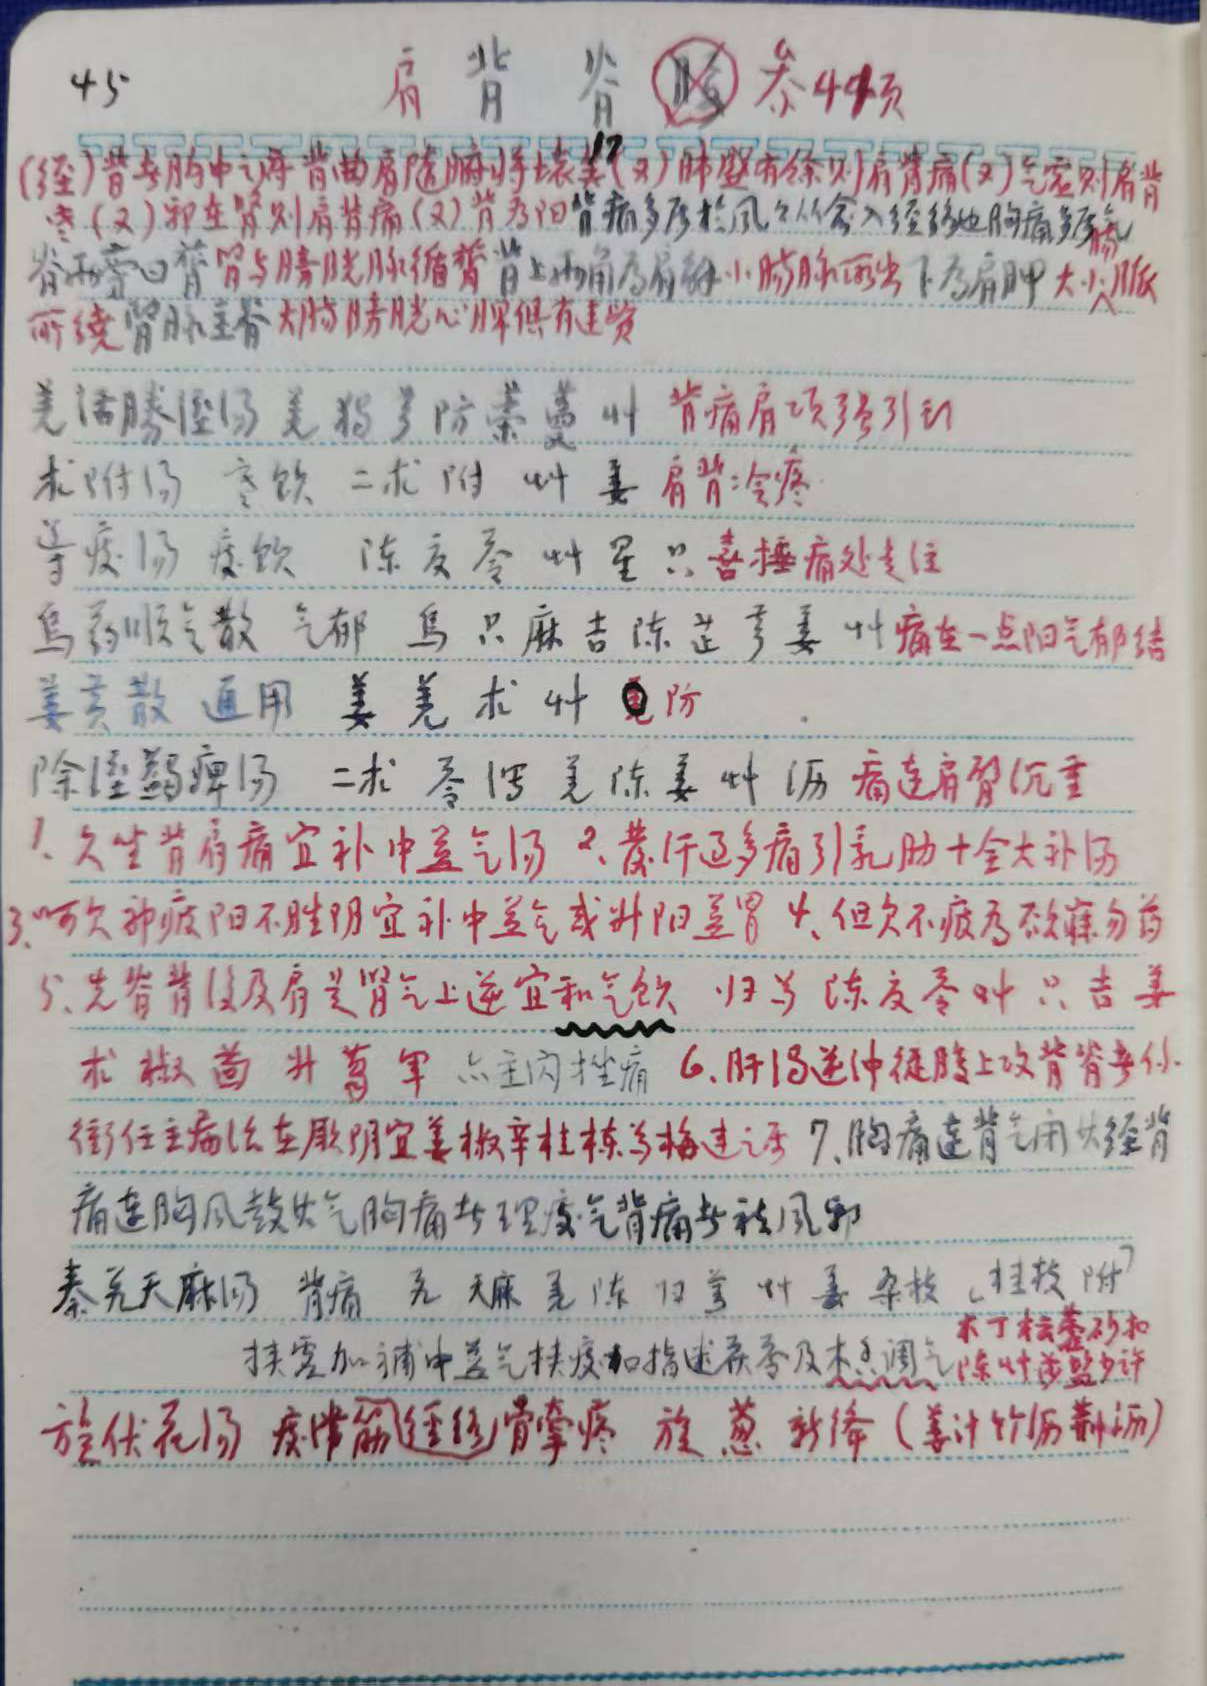 45 肩背脊 参44页
(经)背者胸中之府背曲肩随腑将坏矣(又)肺盛有余则肩背痛(又)气虚则肩背
寒(又)邪在肾则肩背痛(又)背为阳背痛多属于风 从俞入经络也胸痛多属气
脊两旁曰膂肾与膀胱脉循膂背上两角为肩解小肠脉所出下为肩胛大小肠脉
所绕肾脉主脊大肠膀胱心脾俱有连贯
羌活胜湿汤 羌独芎防藁蔓艹 背痛肩项强引
术附汤 寒饮 二术附艹姜 肩背冷疼
导痰汤 痰饮 陈夏苓艹星只 喜捶痛处走注
乌药顺气散 气郁 乌只麻吉陈芷芎姜艹 痛在一点阳气郁结
姜黄散 通用 姜羌术艹 防
除湿蠲痹汤 二术苓泻羌陈姜艹沥 痛连肩臂沉重
1、久坐背肩痛宜补中益气汤 2、发汗过多痛引乳肋十全大补汤
3、呵欠神疲阳不胜阴宜补中益气或升阳益胃 4、但欠不疲为欲寐勿药
5、先脊背后及肩是肾气上逆宜和气饮 归芍陈夏苓艹只吉姜
术椒茴升葛军 主闪挫痛 6、肝浊逆冲从腹上攻背背
冲任主病治在厥阴宜姜椒辛桂楝芍梅 7、胸痛连背气用火经背
痛连胸风鼓火气胸痛者理痰气背痛者祛风邪
秦艽天麻汤 背痛 艽天麻羌陈归芎艹姜桑枝、桂枝附
挟虚加补中益气挟痰加指迷茯苓及木香调气 木丁檀蔻砂扣
陈艹沙盐少许
旋伏花汤 痰滞筋(经络)骨牵疼 旋葱新绛(姜汁竹沥 沥)